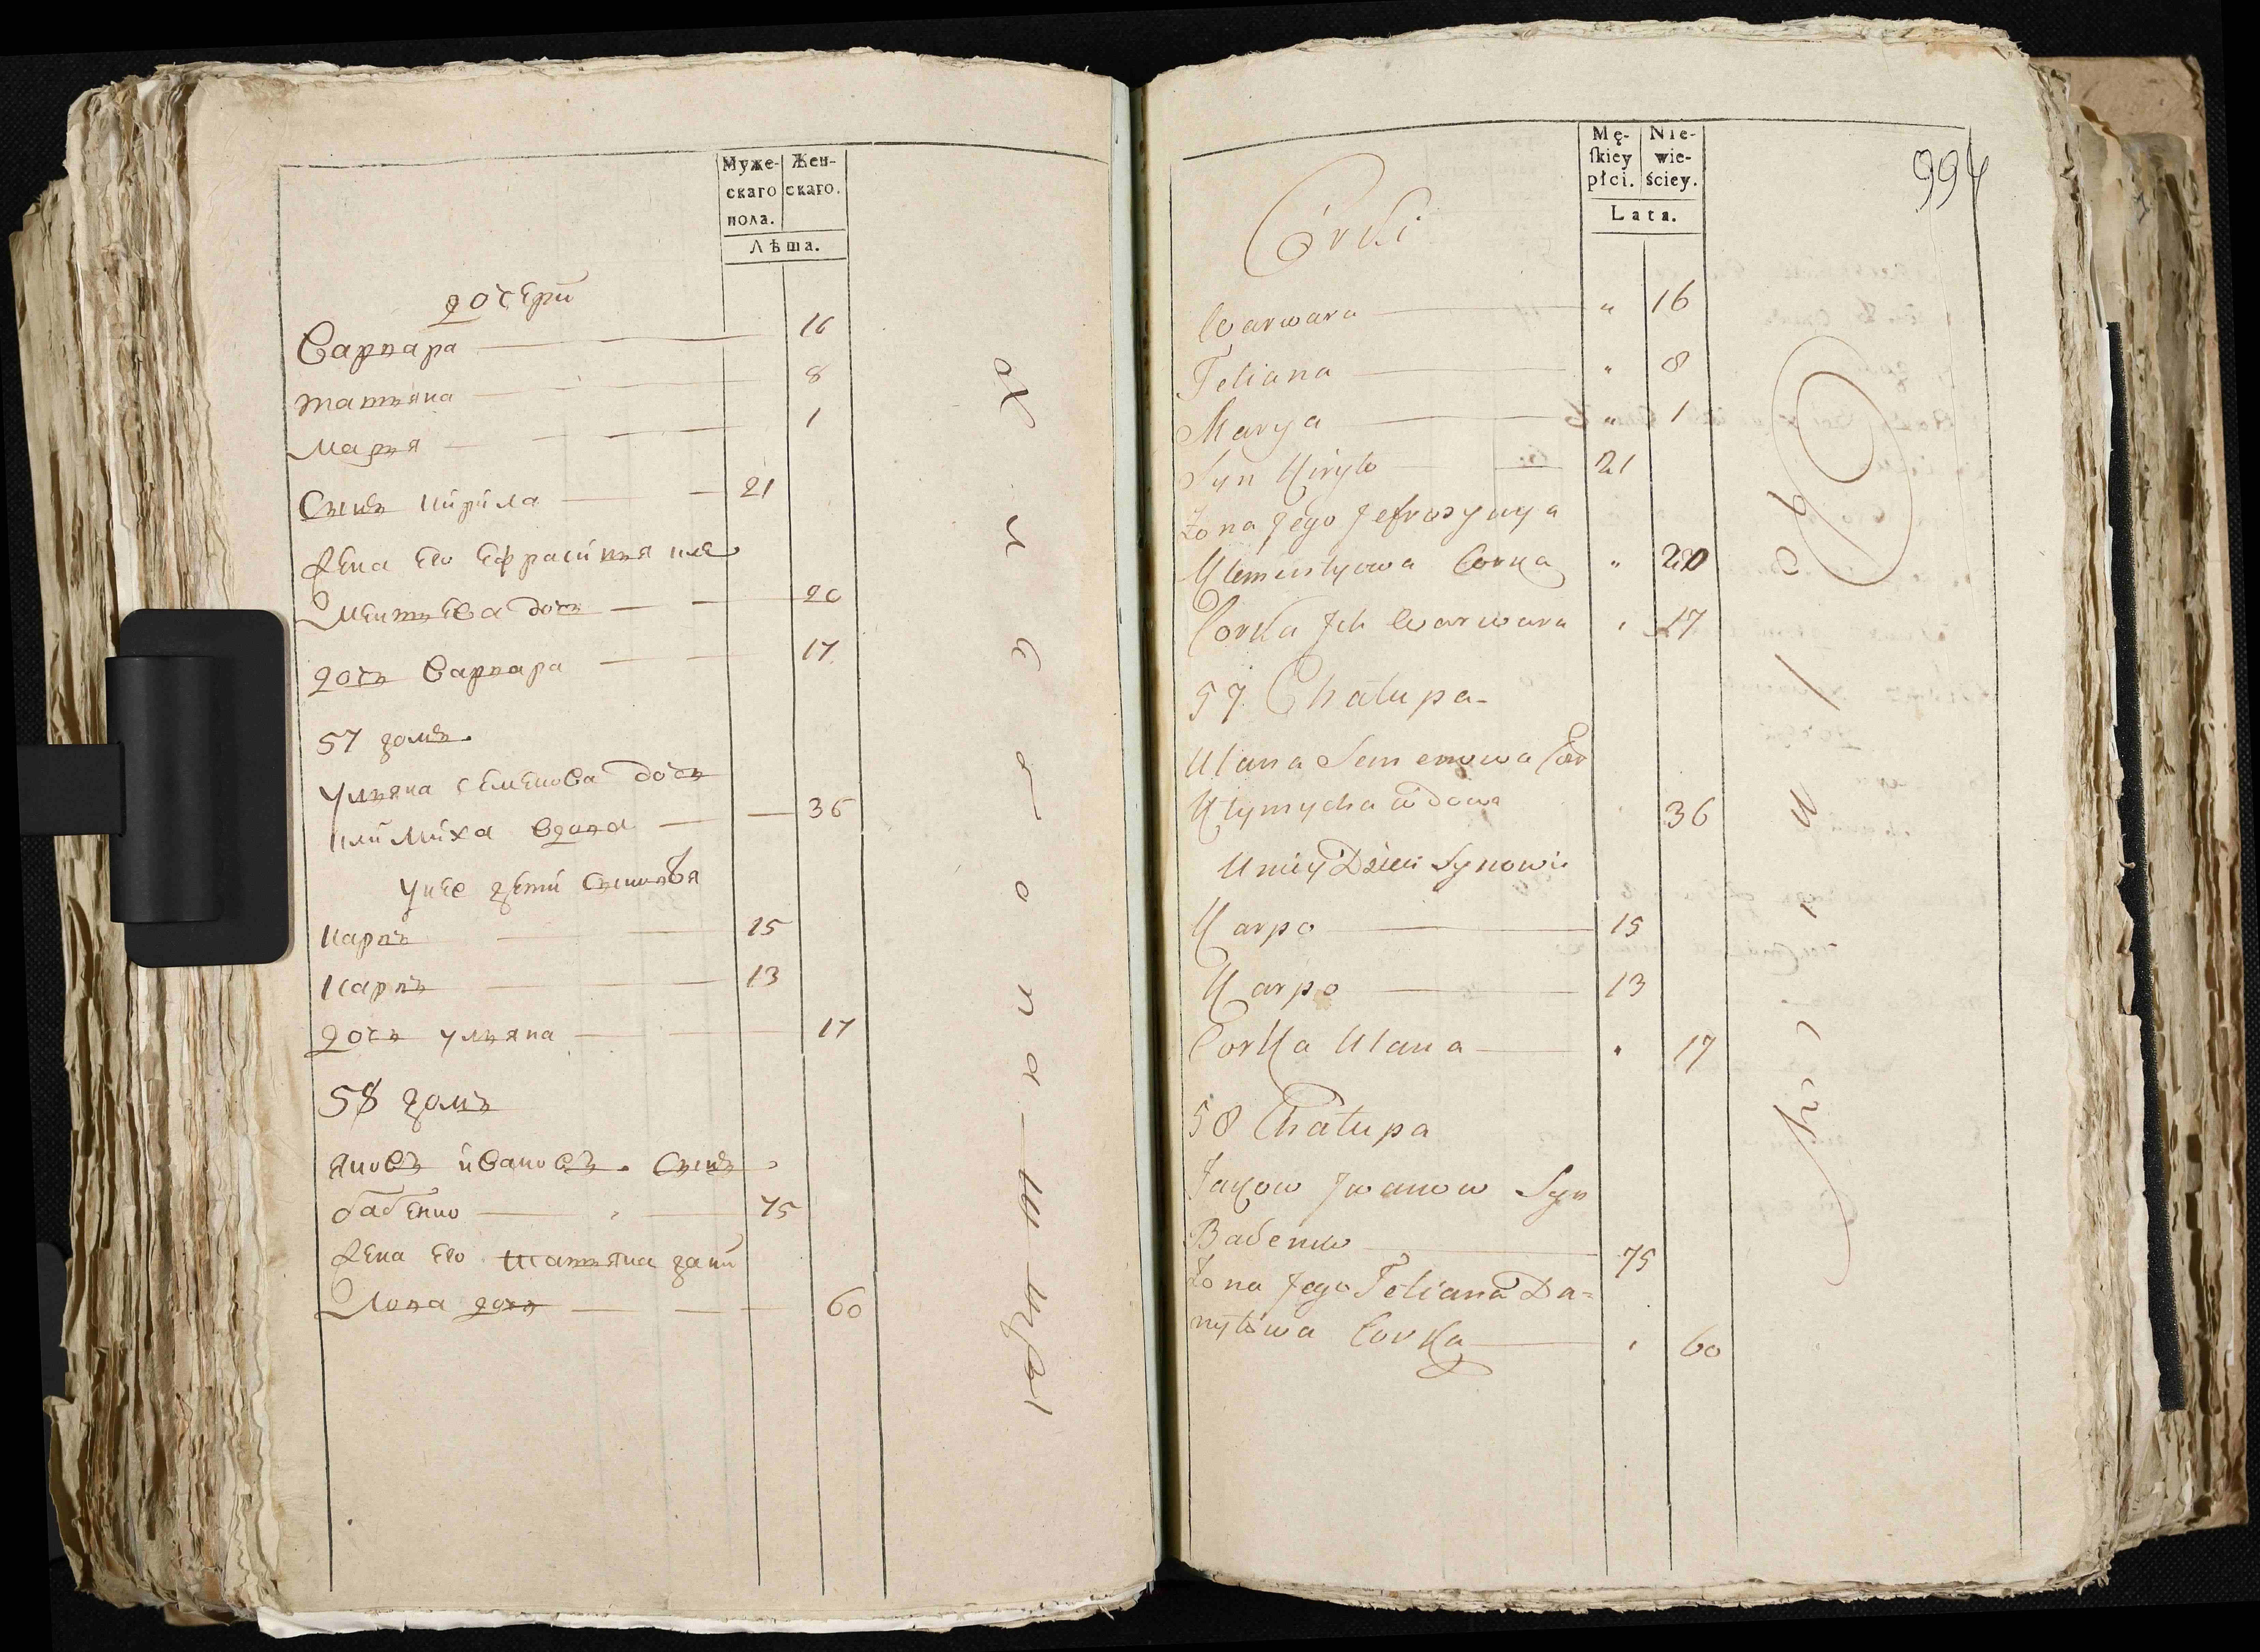 Муже- Жен-
скаго скаго.
пола.
Лѣта.
дочери
Варвара 16
татьяна 8
марья 1
Сынъ кирила 21
Жена Его Ефросинья кле
ментьева дочь 20
дочь Варвара 17
57 домъ
ульяна семенова дочь
климиха вдова 36
у нее дети Сыновья
карпъ 15
карпъ 13
дочь ульяна 17
58 домъ
яковъ ивановъ Сынъ
бабенко 75
Жена Его татьяна дани
лова дочь 60
Mę- Nie-
skiey wie-
płci. ściey.
Lata.
994
Córki
Warwara " 16
Tetiana " 8
Marya " 1
Syn Kiryło 21
Żona Jego Jefrosynya
Klementyowa Corka " 20
Corka Ich Warwara " 17
57 Chałupa
Ulana Semenowa Cor
Klymycha wdowa 36
U niey Dzieci Synowie
Karpo 15
Karpo 13
Corka Ulana " 17
58 Chałupa
Jakow Iwanow Syn
Babenko 75
Żona Jego Tetiana Da=
nyłowa Corka " 60